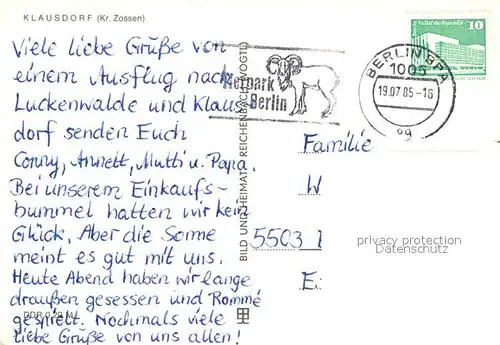 KLAUSDORF (Kr. Zossen)
Viele liebe Grüße von
einem Ausflug nach
Luckenwalde und Klaus
dorf senden Euch
Conny, Annett, Mutti u. Papa.
Bei unserem Einkaufs-
bummel hatten wir kein
Glück. Aber die Sonne
meint es gut mit uns.
Heute Abend haben wir lange
draußen gesessen und Rommé
gespielt. Nochmals viele
liebe Grüße von uns allen!
DDR 0,20 M
BILD UND HEIMAT REICHENBACH (VOGTL)
Tierpark
Berlin
BERLIN BPA
1005
19.07.85-16
Palast der Republik
10
Familie
W
5503
E
privacy protection
Datenschutz